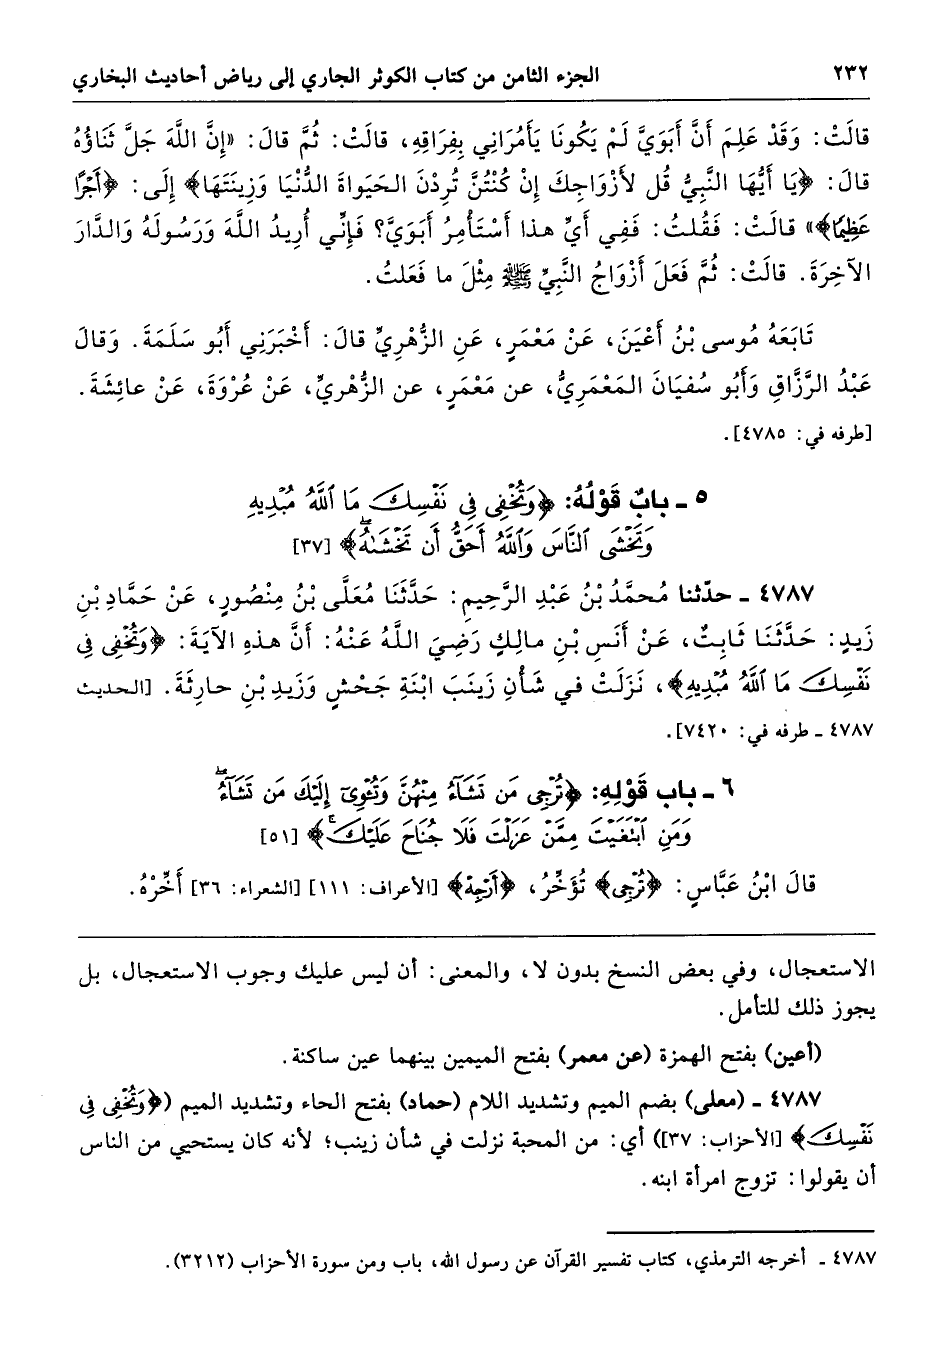 ٢٣٢ الجزء الثامن من كتاب الكوثر الجاري إلى رياض أحاديث البخاري
قالَتْ: وَقَدْ عَلِمَ أَنَّ أَبَوَيَّ لَمْ يَكُونَا يَأْمُرَانِي بِفِرَاقِهِ، قالَتْ: ثُمَّ قالَ: «إِنَّ اللَّهَ جَلَّ ثَنَاؤُهُ
قالَ: ﴿يَا أَيُّهَا النَّبِيُّ قُل لأَزْوَاجِكَ إِنْ كُنْتُنَّ تُرِدْنَ الحَيَواةَ الدُّنْيَا وَزِينَتَهَا﴾ إِلَى: ﴿أَجْرًا
عَظِيمًا﴾» قالَتْ: فَقُلتُ: فَفِي أَيِّ هذا أَسْتَأْمِرُ أَبَوَيَّ؟ فَإِنِّي أُرِيدُ اللَّهَ وَرَسُولَهُ وَالدَّارَ
الآخِرَةَ. قالَتْ: ثُمَّ فَعَلَ أَزْوَاجُ النَّبِيِّ ﷺ مِثْلَ ما فَعَلتُ.
تَابَعَهُ مُوسى بْنُ أَعْيَنَ، عَنْ مَعْمَرٍ، عَنِ الزُّهْرِيِّ قالَ: أَخْبَرَنِي أَبُو سَلَمَةَ. وَقالَ
عَبْدُ الرَّزَّاقِ وَأَبُو سُفيَانَ المَعْمَرِيُّ، عن مَعْمَرٍ، عن الزُّهْرِيِّ، عَنْ عُرْوَةَ، عَنْ عائِشَةَ.
[طرفه في: ٤٧٨٥].
٥ ـ بابٌ قَوْلُهُ: ﴿وَتُخْفِى فِى نَفْسِكَ مَا ٱللَّهُ مُبْدِيهِ
وَتَخْشَى ٱلنَّاسَ وَٱللَّهُ أَحَقُّ أَن تَخْشَىٰهُ﴾ [٣٧]
٤٧٨٧ ـ حدّثنا مُحمَّدُ بْنُ عَبْدِ الرَّحِيمِ: حَدَّثَنَا مُعَلَّى بْنُ مِنْصُورٍ، عَنْ حَمَّادِ بْنِ
زَيدٍ: حَدَّثَنَا ثَابِتٌ، عَنْ أَنَسِ بْنِ مالِكٍ رَضِيَ اللَّهُ عَنْهُ: أَنَّ هذهِ الآيَةَ: ﴿وَتُخْفِى فِى
نَفْسِكَ مَا ٱللَّهُ مُبْدِيهِ﴾، نَزَلَتْ في شَأْنِ زَينَبَ ابْنَةِ جَحْشٍ وَزَيدِ بْنِ حارِثَةَ. [الحديث
٤٧٨٧ ـ طرفه في: ٧٤٢٠].
٦ ـ باب قَوْلِهِ: ﴿تُرْجِى مَن تَشَآءُ مِنْهُنَّ وَتُـْٔوِىٓ إِلَيْكَ مَن تَشَآءُ ۖ
وَمَنِ ٱبْتَغَيْتَ مِمَّنْ عَزَلْتَ فَلَا جُنَاحَ عَلَيْكَ ۚ﴾ [٥١]
قالَ ابْنُ عَبَّاسٍ: ﴿تُرْجِى﴾ تُؤَخِّرُ، ﴿أَرْجِهْ﴾ [الأعراف: ١١١] [الشعراء: ٣٦] أَخِّرْهُ.
الاستعجال، وفي بعض النسخ بدون لا، والمعنى: أن ليس عليك وجوب الاستعجال، بل
يجوز ذلك للتأمل.
(أعين) بفتح الهمزة (عن معمر) بفتح الميمين بينهما عين ساكنة.
٤٧٨٧ ـ (معلى) بضم الميم وتشديد اللام (حماد) بفتح الحاء وتشديد الميم (﴿وَتُخْفِى فِى
نَفْسِكَ﴾ [الأحزاب: ٣٧]) أي: من المحبة نزلت في شأن زينب؛ لأنه كان يستحيي من الناس
أن يقولوا: تزوج امرأة ابنه.
٤٧٨٧ ـ أخرجه الترمذي، كتاب تفسير القرآن عن رسول الله، باب ومن سورة الأحزاب (٣٢١٢).